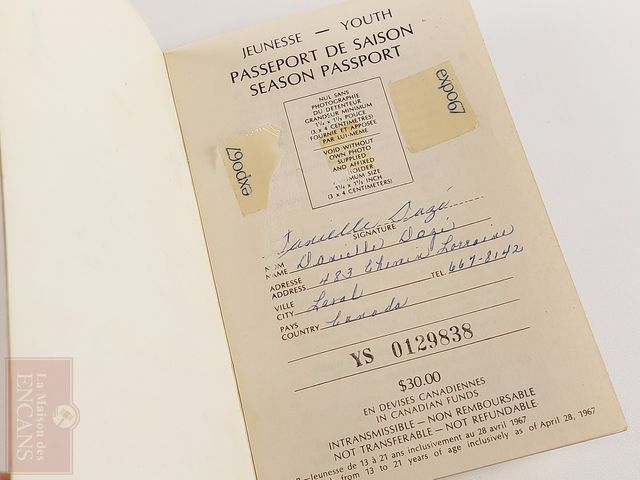 JEUNESSE — YOUTH
PASSEPORT DE SAISON
SEASON PASSPORT
NUL SANS
PHOTOGRAPHIE
DU DETENTEUR
GRANDEUR MINIMUM
1¼ x 1½ POUCE
(3 x 4 CENTIMETRES)
FOURNIE ET APPOSEE
PAR LUI-MEME
VOID WITHOUT
OWN PHOTO
SUPPLIED
AND AFFIXED
SIZE
1¼ x 1½ INCH
(3 x 4 CENTIMETERS)
expo67
expo67
Danielle Dazé
SIGNATURE
NOM
NAME Danielle Dazé
ADRESSE
ADDRESS 483 Chemin Lorraine
VILLE
CITY Laval TEL. 667-8142
PAYS
COUNTRY Canada
YS 0129838
$30.00
EN DEVISES CANADIENNES
IN CANADIAN FUNDS
INTRANSMISSIBLE — NON REMBOURSABLE
NOT TRANSFERABLE — NOT REFUNDABLE
—Jeunesse de 13 à 21 ans inclusivement au 28 avril 1967
from 13 to 21 years of age inclusively as of April 28, 1967
La Maison des
ENCANS